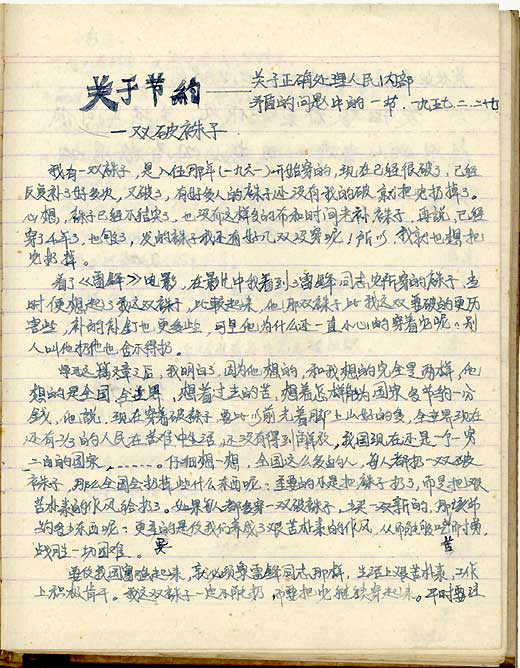 关于节约——关于正确处理人民内部
矛盾的问题中的一节.一九五七.二.二十七
—双破袜子
我有一双袜子,是入伍那年(一九六一)开始穿的,现在已经很破了,已经
反复补了好多次,又破了,有好多人的袜子还没有我的破就把它扔掉了。
心想,袜子已经不结实了,也没有这样多的布和时间来补袜子,再说,已经
穿了4年了,也够了,发的袜子我还有好几双没穿呢!所以我就也想把
它扔掉。
看了《雷锋》电影,在影片中我看到了雷锋同志它所穿的袜子,当
时便想起了我这双袜子,比较起来,他那双袜子比我这双要破的更厉
害些,补的补钉也更多些,可是他为什么还一直小心的穿着它呢?别
人叫他扔他也舍不得扔。
学习这篇文章之后,我明白了,因为他想的,和我想的完全是两样,他
想的是全国,全世界,想着过去的苦,想着怎样能为国家多节约一分
钱,他说,现在穿着破袜子要比以前光着脚上山好的多,全世界现在
还有2/3的人民在苦难中生活,还没有得到解放。我国现在还是一个一穷
二白的国家,……。仔细想一想,全国这么多的人,每人都扔一双破
袜子,那么全国会扔掉些什么东西呢?主要的不是把袜子扔了,而是把艰
苦朴素的作风给扔了。如果每人都去穿一双破袜子,去买一双新的,那要节
约多少东西呢?更主要的是使我们养成了艰苦朴素的作风,从而能够吃苦耐劳,
战胜一切困难。
要使我国富强起来,就必须象雷锋同志那样,生活上艰苦朴素,工作
上积极肯干。我这双袜子一定不能扔,而要把它继续穿起来。平时要注